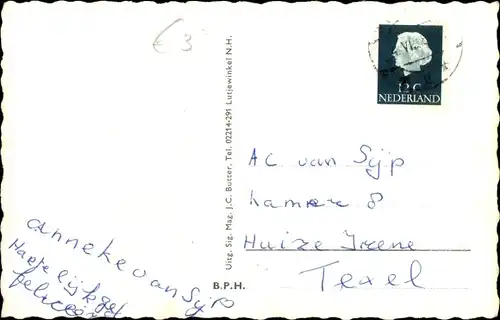 € 3
12 C
NEDERLAND
Uitg. Sig. Mag. J.C. Butter, Tel. 02214-291 Lutjewinkel N.H.
B.P.H.
AC van Sÿp
kamer 8
Huize Irene
Texel
Anneke van Sÿp
Hartelijk gef